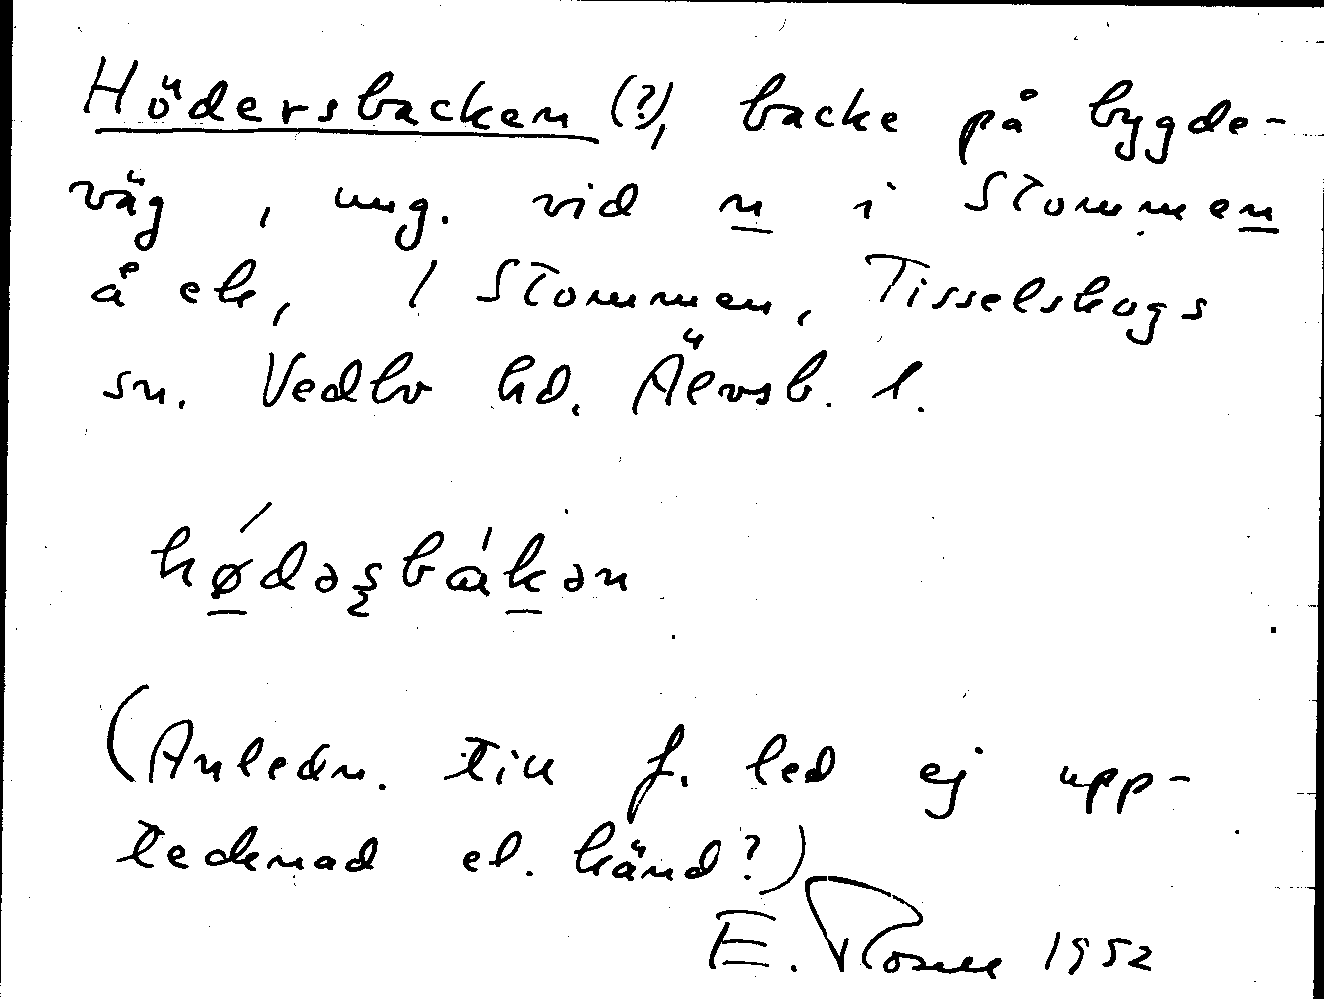 Hödersbacken (?), backe på bygde-
väg, ung. vid n i Stommen
å ek, 1 Stommen, Tisselskogs
sn. Vedbo hd. Älvsb. l.
hǿdəʂbákən
(Anledn. till f. led ej upp-
tecknad el. känd?)
E. 1952